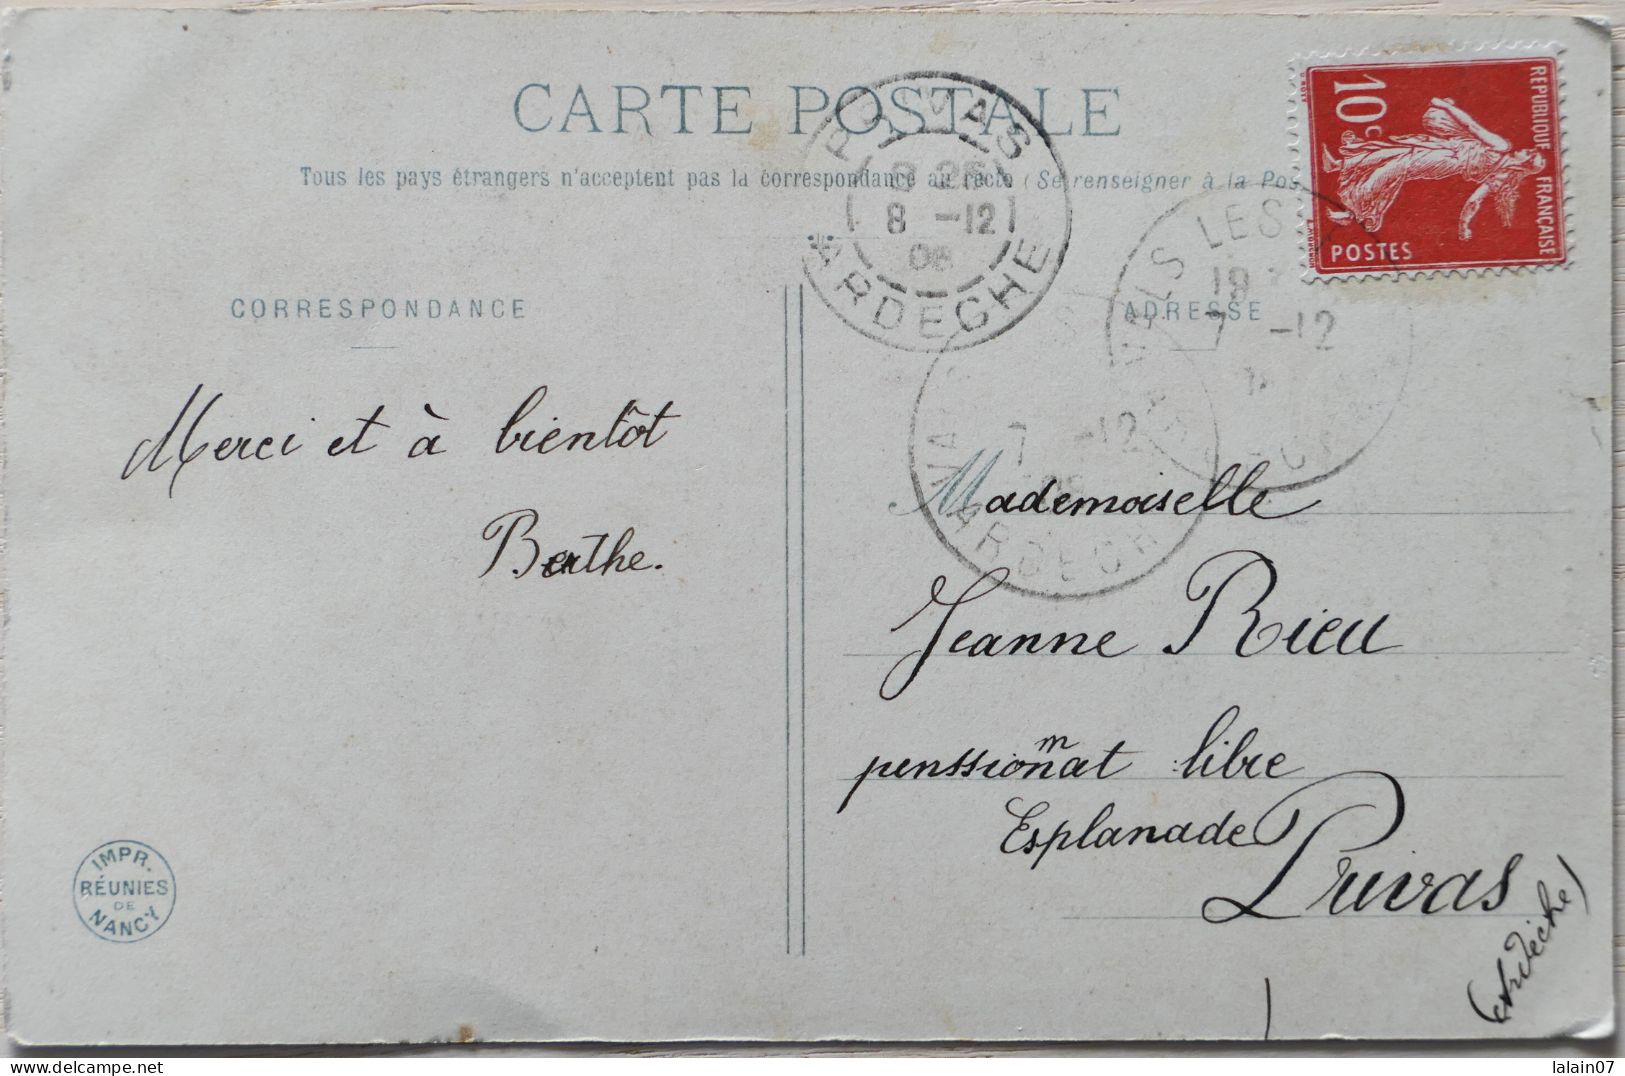 CARTE POSTALE
Tous les pays étrangers n'acceptent pas la correspondance au recto (Se renseigner à la Pos
CORRESPONDANCE
ADRESSE
REPUBLIQUE FRANÇAISE
10c
POSTES
PRIVAS
8 -12
06
ARDECHE
LS LES
7 -12
7 -12
ARDECH
Merci et à bientôt
Berthe.
Mademoiselle
Jeanne Rieu
m
penssionnat libre
Esplanade
Privas
(Ardèche)
IMPR.
RÉUNIES
DE
NANCY
lalain07